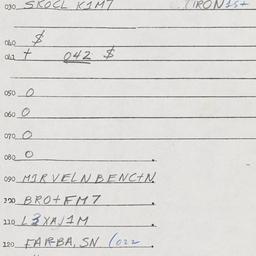 030 SKOCL K1M7 IRON 1st
040 $
041 t 042 $
050 0
060 0
070 0
080 0 .
090 M1RVELNBENCtN.
100 BROtFM7 .
110 L3XAJ1M .
120 FARBA, SN (022 .